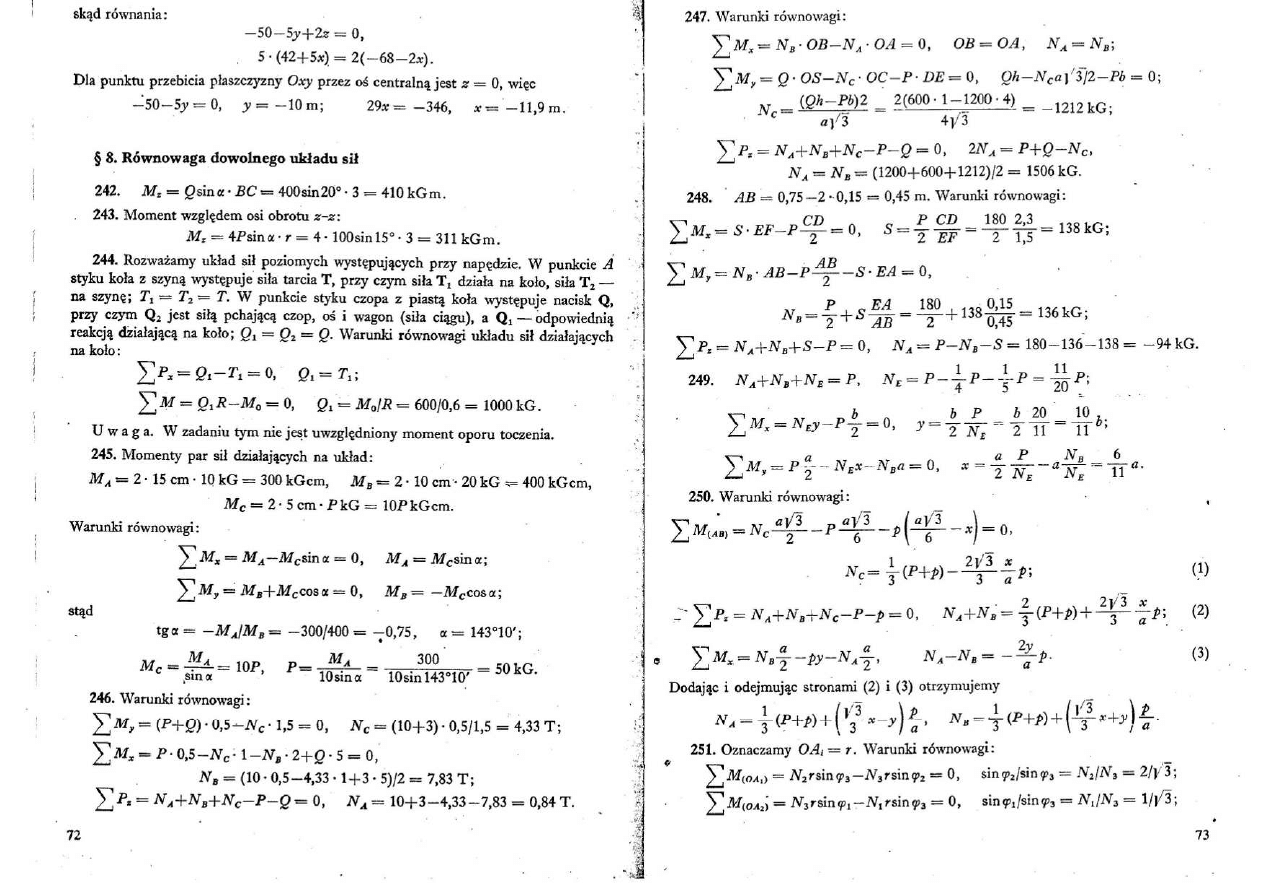 skąd równania:
−50−5y+2z = 0,
5 · (42+5x) = 2(−68−2x).
Dla punktu przebicia płaszczyzny Oxy przez oś centralną jest z = 0, więc
−50−5y = 0, y = −10 m; 29x = −346, x = −11,9 m.
§ 8. Równowaga dowolnego układu sił
242. M_z = Q sin α · BC = 400 sin 20° · 3 = 410 kGm.
243. Moment względem osi obrotu z-z:
M_z = 4P sin α · r = 4 · 100 sin 15° · 3 = 311 kGm.
244. Rozważamy układ sił poziomych występujących przy napędzie. W punkcie A
styku koła z szyną występuje siła tarcia T, przy czym siła T₁ działa na koło, siła T₂ —
na szynę; T₁ = T₂ = T. W punkcie styku czopa z piastą koła występuje nacisk Q,
przy czym Q₂ jest siłą pchającą czop, oś i wagon (siła ciągu), a Q₁ — odpowiednią
reakcją działającą na koło; Q₁ = Q₂ = Q. Warunki równowagi układu sił działających
na koło:
∑P_x = Q₁−T₁ = 0, Q₁ = T₁;
∑M = Q₁R−M₀ = 0, Q₁ = M₀/R = 600/0,6 = 1000 kG.
Uwaga. W zadaniu tym nie jest uwzględniony moment oporu toczenia.
245. Momenty par sił działających na układ:
M_A = 2 · 15 cm · 10 kG = 300 kGcm, M_B = 2 · 10 cm · 20 kG = 400 kGcm,
M_C = 2 · 5 cm · P kG = 10P kGcm.
Warunki równowagi:
∑M_x = M_A−M_C sin α = 0, M_A = M_C sin α;
∑M_y = M_B+M_C cos α = 0, M_B = −M_C cos α;
stąd
tg α = −M_A/M_B = −300/400 = −0,75, α = 143°10′;
M_C = M_A/sin α = 10P, P = M_A/(10 sin α) = 300/(10 sin 143°10′) = 50 kG.
246. Warunki równowagi:
∑M_y = (P+Q) · 0,5−N_C · 1,5 = 0, N_C = (10+3) · 0,5/1,5 = 4,33 T;
∑M_x = P · 0,5−N_C · 1−N_B · 2+Q · 5 = 0,
N_B = (10 · 0,5−4,33 · 1+3 · 5)/2 = 7,83 T;
∑P_z = N_A+N_B+N_C−P−Q = 0, N_A = 10+3−4,33−7,83 = 0,84 T.
72
247. Warunki równowagi:
∑M_x = N_B · OB−N_A · OA = 0, OB = OA, N_A = N_B;
∑M_y = Q · OS−N_C · OC−P · DE = 0, Qh−N_C a√3/2−Pb = 0;
N_C = (Qh−Pb)2/(a√3) = 2(600 · 1−1200 · 4)/(4√3) = −1212 kG;
∑P_z = N_A+N_B+N_C−P−Q = 0, 2N_A = P+Q−N_C,
N_A = N_B = (1200+600+1212)/2 = 1506 kG.
248. AB = 0,75−2·0,15 = 0,45 m. Warunki równowagi:
∑M_x = S · EF−P CD/2 = 0, S = P/2 CD/EF = 180/2 2,3/1,5 = 138 kG;
∑M_y = N_B · AB−P AB/2−S · EA = 0,
N_B = P/2+S EA/AB = 180/2+138 0,15/0,45 = 136 kG;
∑P_z = N_A+N_B+S−P = 0, N_A = P−N_B−S = 180−136−138 = −94 kG.
249. N_A+N_B+N_E = P, N_E = P−1/4 P−1/5 P = 11/20 P;
∑M_x = N_E y−P b/2 = 0, y = b/2 P/N_E = b/2 20/11 = 10/11 b;
∑M_y = P a/2 − N_E x−N_B a = 0, x = a/2 P/N_E−a N_B/N_E = 6/11 a.
250. Warunki równowagi:
∑M_(AB) = N_C a√3/2−P a√3/6−p(a√3/6−x) = 0,
N_C = 1/3 (P+p)−2√3/3 x/a p; (1)
∑P_z = N_A+N_B+N_C−P−p = 0, N_A+N_B = 2/3 (P+p)+2√3/3 x/a p; (2)
∑M_x = N_B a/2−py−N_A a/2, N_A−N_B = −2y/a p. (3)
Dodając i odejmując stronami (2) i (3) otrzymujemy
N_A = 1/3 (P+p)+(√3/3 x−y) p/a, N_B = 1/3 (P+p)+(√3/3 x+y) p/a.
251. Oznaczamy OA_i = r. Warunki równowagi:
∑M_(OA₁) = N₂r sin φ₃−N₃r sin φ₂ = 0, sin φ₂/sin φ₃ = N₂/N₃ = 2/√3;
∑M_(OA₂) = N₃r sin φ₁−N₁r sin φ₃ = 0, sin φ₁/sin φ₃ = N₁/N₃ = 1/√3;
73